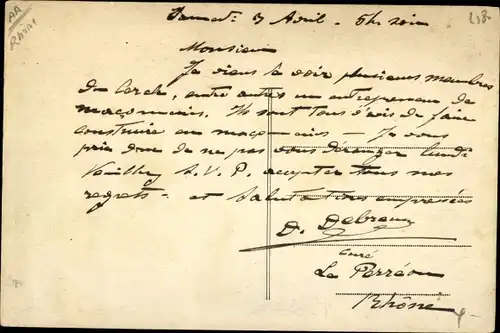 AA
Rhône
218
Samedi 3 Avril. 5h soir
Monsieur
Je viens de voir plusieurs membres
du Cercle, entre autres un entrepreneur de
maçonnerie. Ils sont tous d'avis de faire
construire en maçonnerie - Je vous
prie donc de ne pas vous déranger lundi
Veuillez S. V. P. accepter tous mes
regrets - et salutations empressées
D.
curé
Le Perréon
Rhône